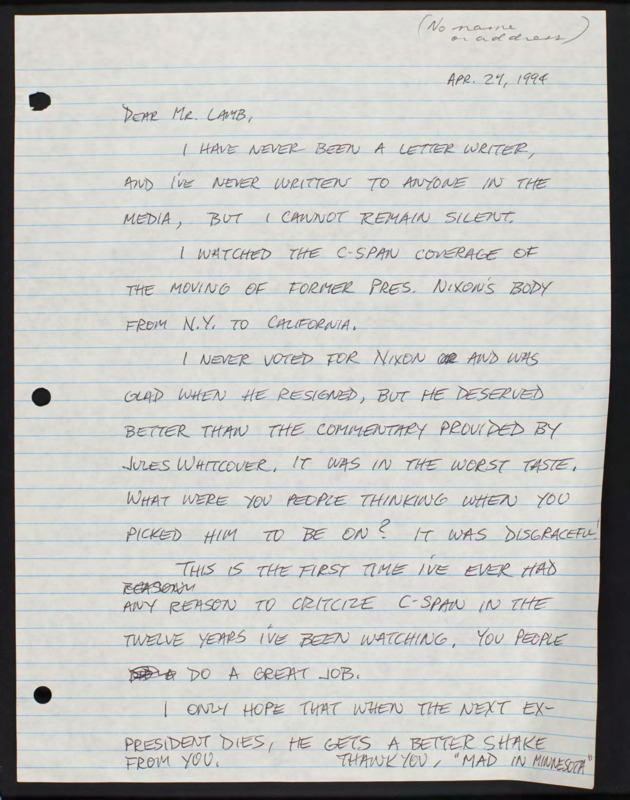 (No name
or address)
APR. 27, 1994
DEAR MR. LAMB,
I HAVE NEVER BEEN A LETTER WRITER,
AND I'VE NEVER WRITTEN TO ANYONE IN THE
MEDIA, BUT I CANNOT REMAIN SILENT.
I WATCHED THE C-SPAN COVERAGE OF
THE MOVING OF FORMER PRES. NIXON'S BODY
FROM N.Y. TO CALIFORNIA.
I NEVER VOTED FOR NIXON AND WAS
GLAD WHEN HE RESIGNED, BUT HE DESERVED
BETTER THAN THE COMMENTARY PROVIDED BY
JULES WHITCOVER. IT WAS IN THE WORST TASTE.
WHAT WERE YOU PEOPLE THINKING WHEN YOU
PICKED HIM TO BE ON? IT WAS DISGRACEFUL!
THIS IS THE FIRST TIME I'VE EVER HAD
ANY REASON TO CRITCIZE C-SPAN IN THE
TWELVE YEARS I'VE BEEN WATCHING. YOU PEOPLE
DO A GREAT JOB.
I ONLY HOPE THAT WHEN THE NEXT EX-
PRESIDENT DIES, HE GETS A BETTER SHAKE
FROM YOU. THANK YOU, "MAD IN MINNESOTA"